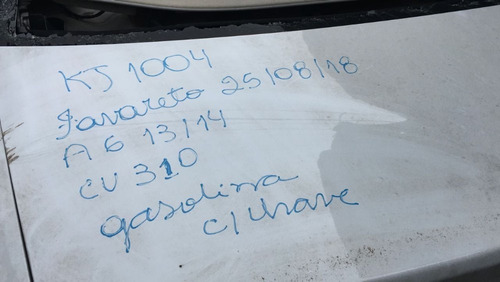 KJ 1004
Favareto 25/08/18
A6 13/14
CV 310
gasolina
c/ chave